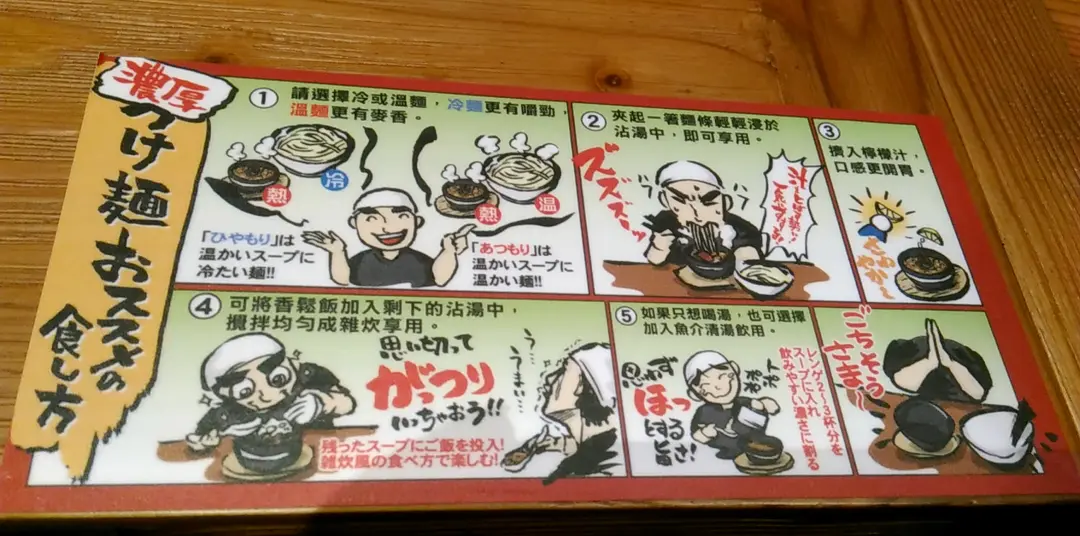 濃厚
つけ麺おススメの
食し方
① 請選擇冷或溫麵，冷麵更有嚼勁，
溫麵更有麥香。
熱
冷
熱
温
「ひやもり」は
温かいスープに
冷たい麺!!
「あつもり」は
温かいスープに
温かい麺!!
② 夾起一箸麵條輕輕浸於
沾湯中，即可享用。
ズズズーッ
③
擠入檸檬汁，
口感更開胃。
さわやか〜
④ 可將香鬆飯加入剩下的沾湯中，
攪拌均勻成雜炊享用。
思い切って
がっつり
いっちゃおう!!
残ったスープにご飯を投入!
雑炊風の食べ方で楽しむ!
う…
うまい…
⑤ 如果只想喝湯，也可選擇
加入魚介清湯飲用。
思わず
ほっ
とする
旨さ!
トポポポ
レンゲ2〜3杯分を
スープに入れ
飲みやすい濃さに割る
ごちそう
さま〜